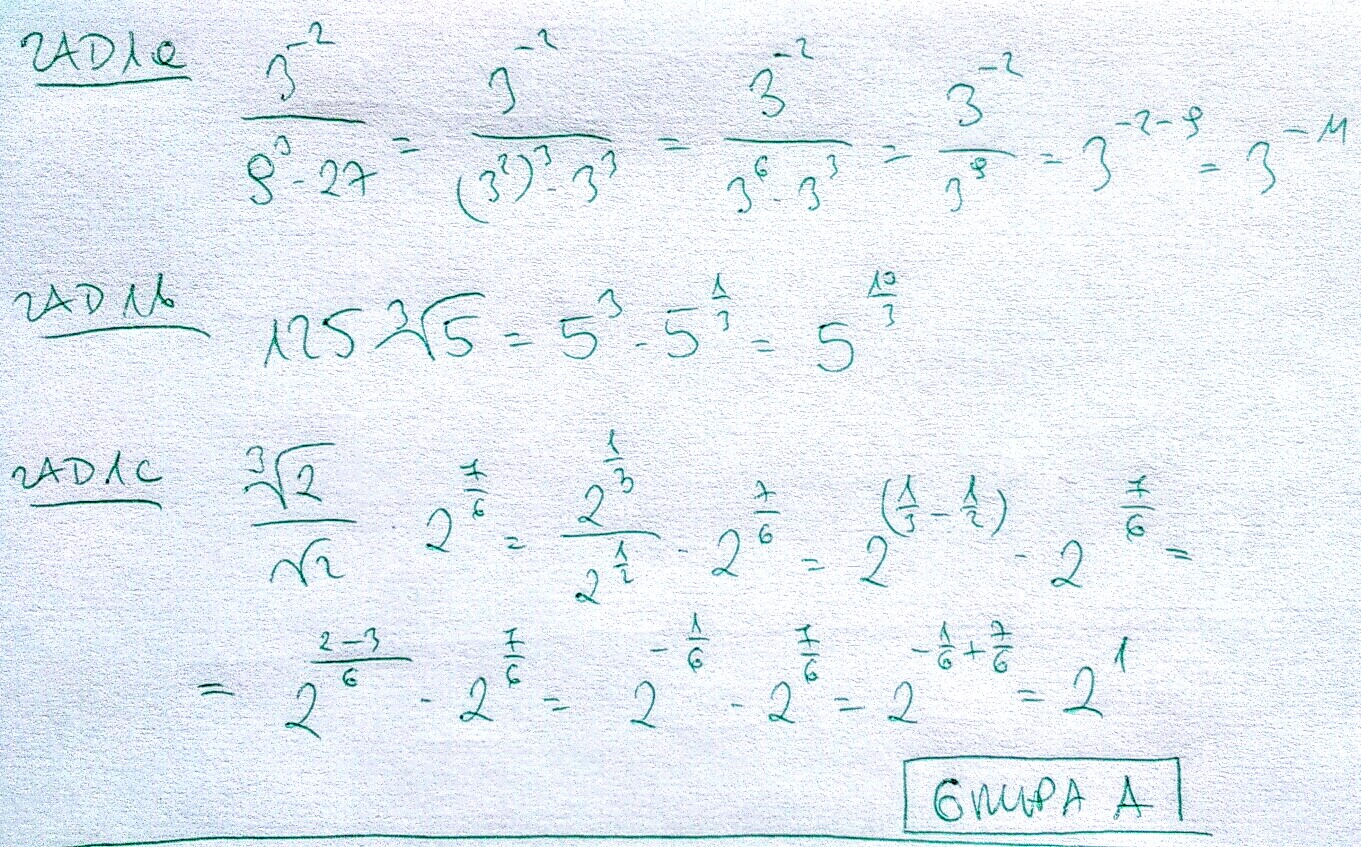 ZAD1a 3^-2 / 9^3 · 27 = 3^-2 / (3^2)^3 · 3^3 = 3^-2 / 3^6 · 3^3 = 3^-2 / 3^9 = 3^-2-9 = 3^-11
ZAD1b 125 ∛5 = 5^3 · 5^1/3 = 5^10/3
ZAD1c ∛2 / √2 · 2^7/6 = 2^1/3 / 2^1/2 · 2^7/6 = 2^(1/3 - 1/2) · 2^7/6 =
= 2^2-3/6 · 2^7/6 = 2^-1/6 · 2^7/6 = 2^-1/6+7/6 = 2^1
GRUPA A